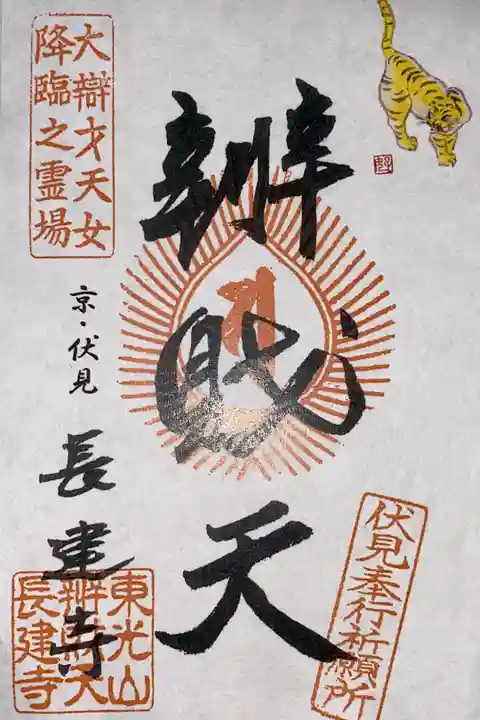 辨財天
大辯才天女
降臨之霊場
京・伏見
長建寺
伏見奉行祈願所
東光山
辨財天
長建寺